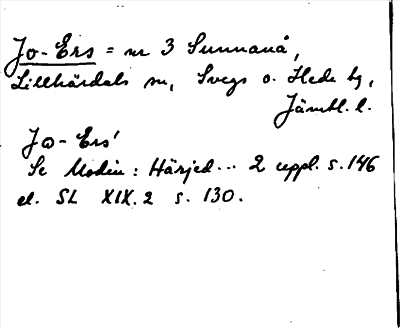 Jo-Ers = nr 3 Sunnanå,
Lillhärdals sn, Svegs o. Hede tg,
Jämtl. l.
Jo-Ers'
Se Modin: Härjed... 2 uppl. s. 146
el. SL XIX. 2 s. 130.